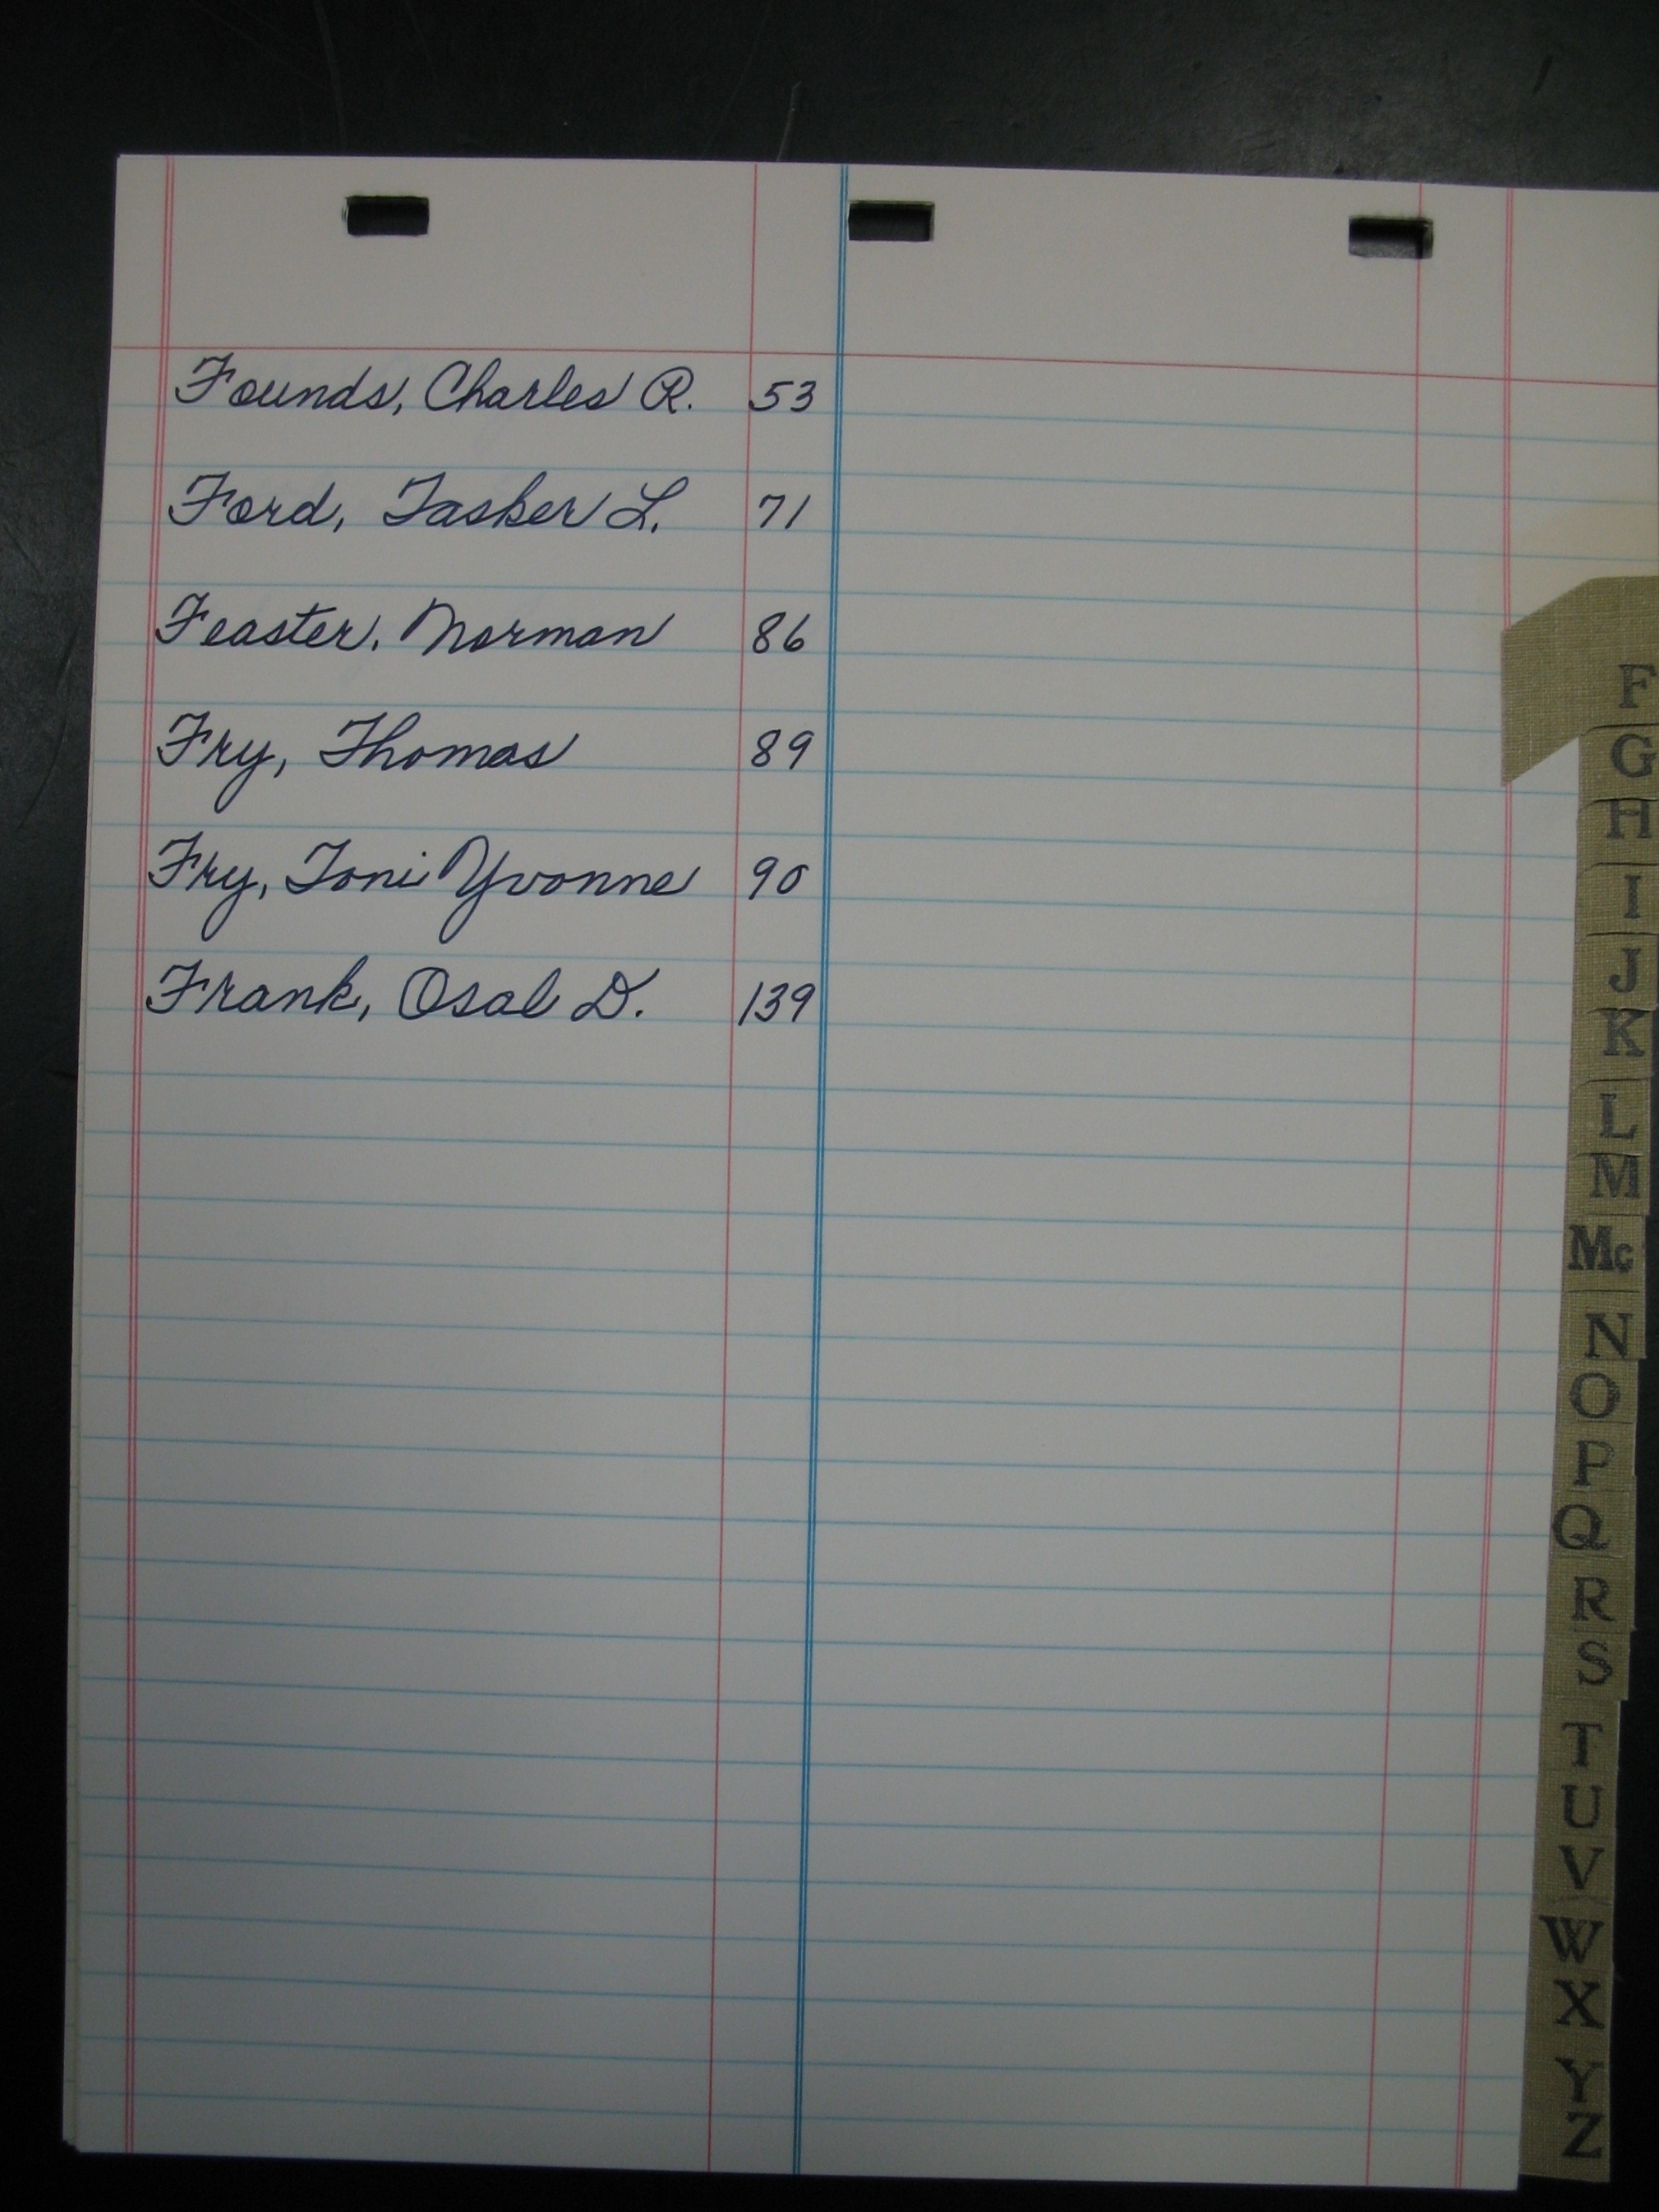 Founds, Charles R. 53
Ford, Tasker L. 71
Feaster, Norman 86
Fry, Thomas 89
Fry, Toni Yvonne 90
Frank, Osal D. 139
F
G
H
I
J
K
L
M
Mc
N
O
P
Q
R
S
T
U
V
W
X
Y
Z